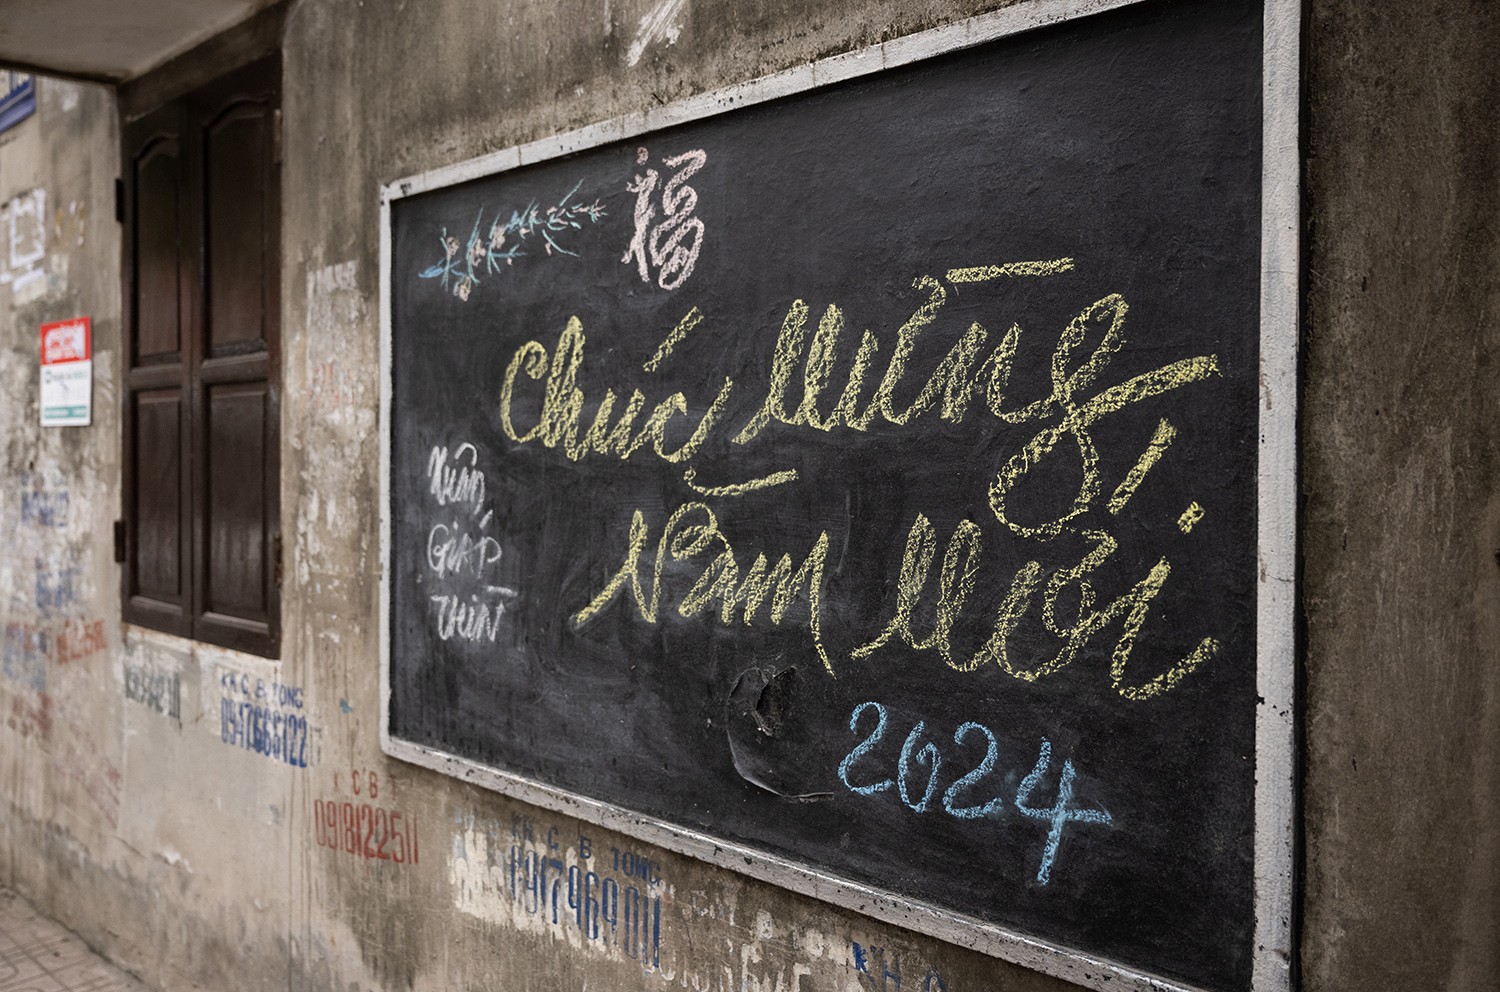 福
Chúc Mừng
Năm Mới
2024
Xuân
Giáp
Thìn
KH C B TONG
0947668122
K C B T
0918122511
KH C B TONG
0917969011
KH